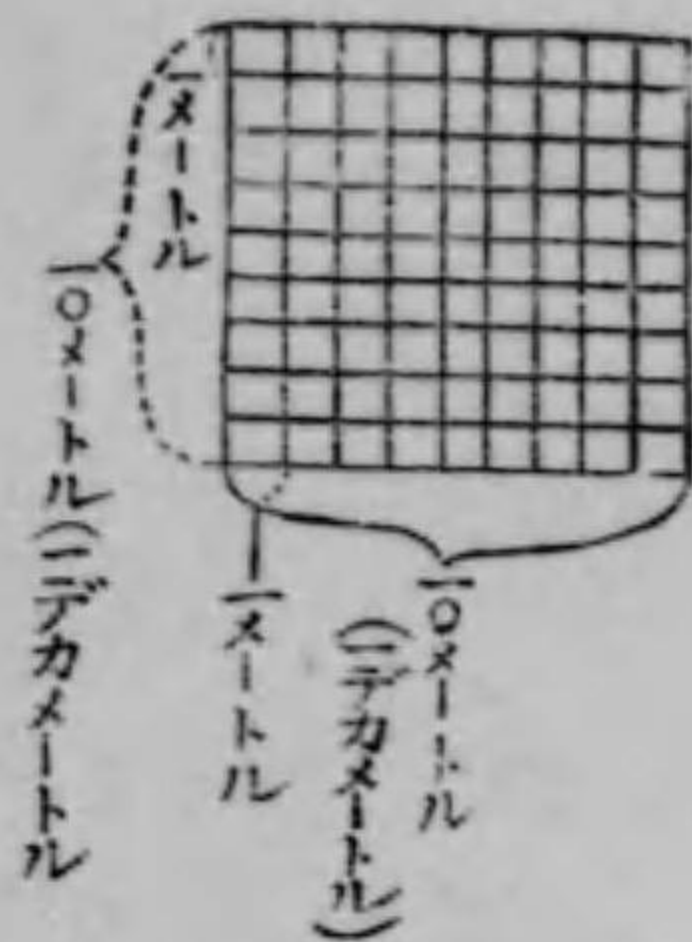 一〇メートル
(一デカメートル)
一メートル
一メートル
一〇メートル(一デカメートル